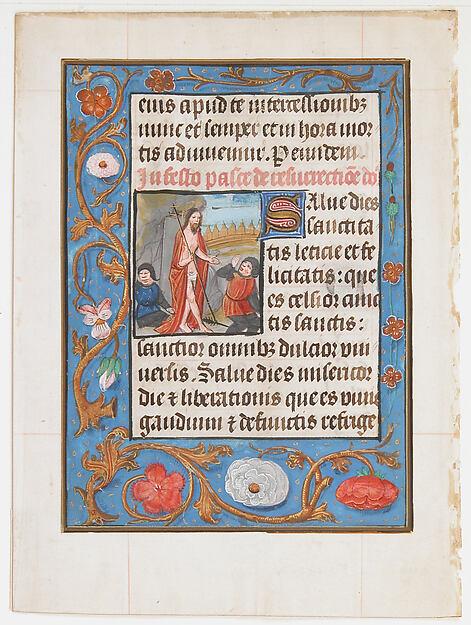 eius apud te intercessionibꝫ
nunc et semper et in hora mor
tis adiuuemur. Per eundem.
In festo pasce de resurrectiōe dn̄i
Salue dies
sanctita
tis leticie et fe
licitatis: que
es celsior cunc
tis sanctis:
sanctior omnibꝫ dulcior vni
uersis. Salue dies misericor
die ⁊ liberationis que es viuis
gaudium ⁊ defunctis refrige